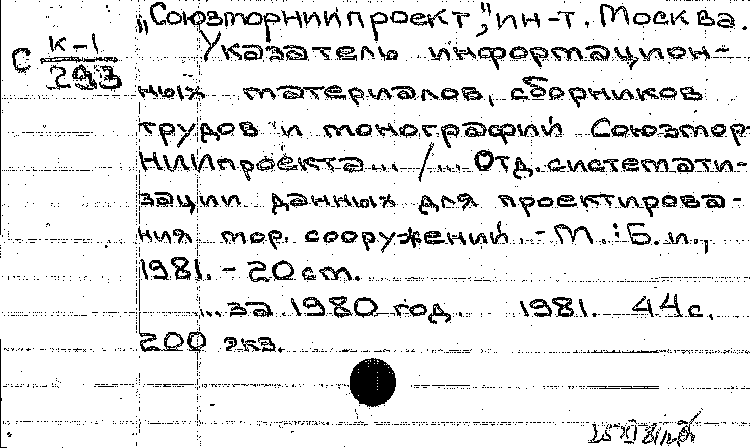 „Союзторниипроект“, ин-т. Москва.
С К-1
293
Указатель информацион-
ных материалов, сборников
трудов и монографий Союзтор-
НИИпроекта... /... Отд. системати-
зации данных для проектирова-
ния тор. сооружений. - М.: Б.и.,
1981. - 20 ст.
... за 1980 год. 1981. 44 с.
200 экз.